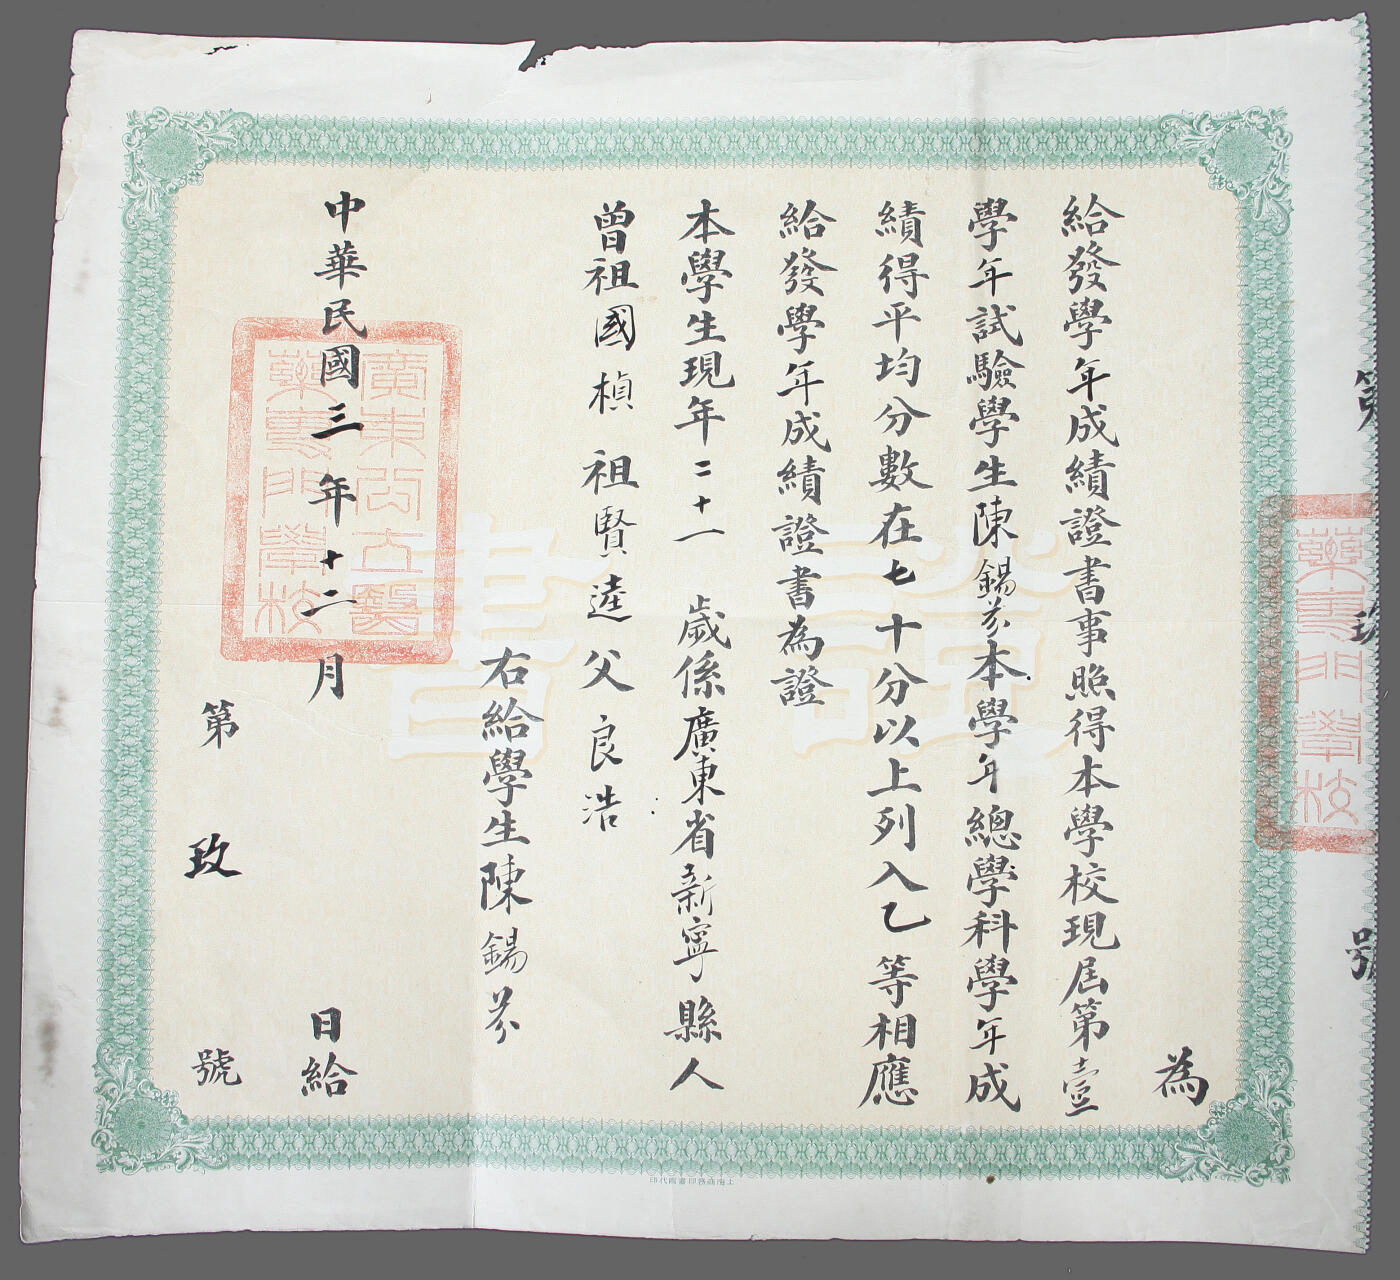 第 玖 號
為
給發學年成績證書事照得本學校現屆第壹
學年試驗學生陳錫芬本學年總學科學年成
績得平均分數在七十分以上列入乙等相應
給發學年成績證書為證
本學生現年二十一歲係廣東省新寧縣人
曾祖國楨 祖賢逵 父良浩
右給學生陳錫芬
中華民國三年十二月 日給
第 玖 號
證書
廣東公立醫
藥專門學校
藥專門學校
上海商務印書館代印